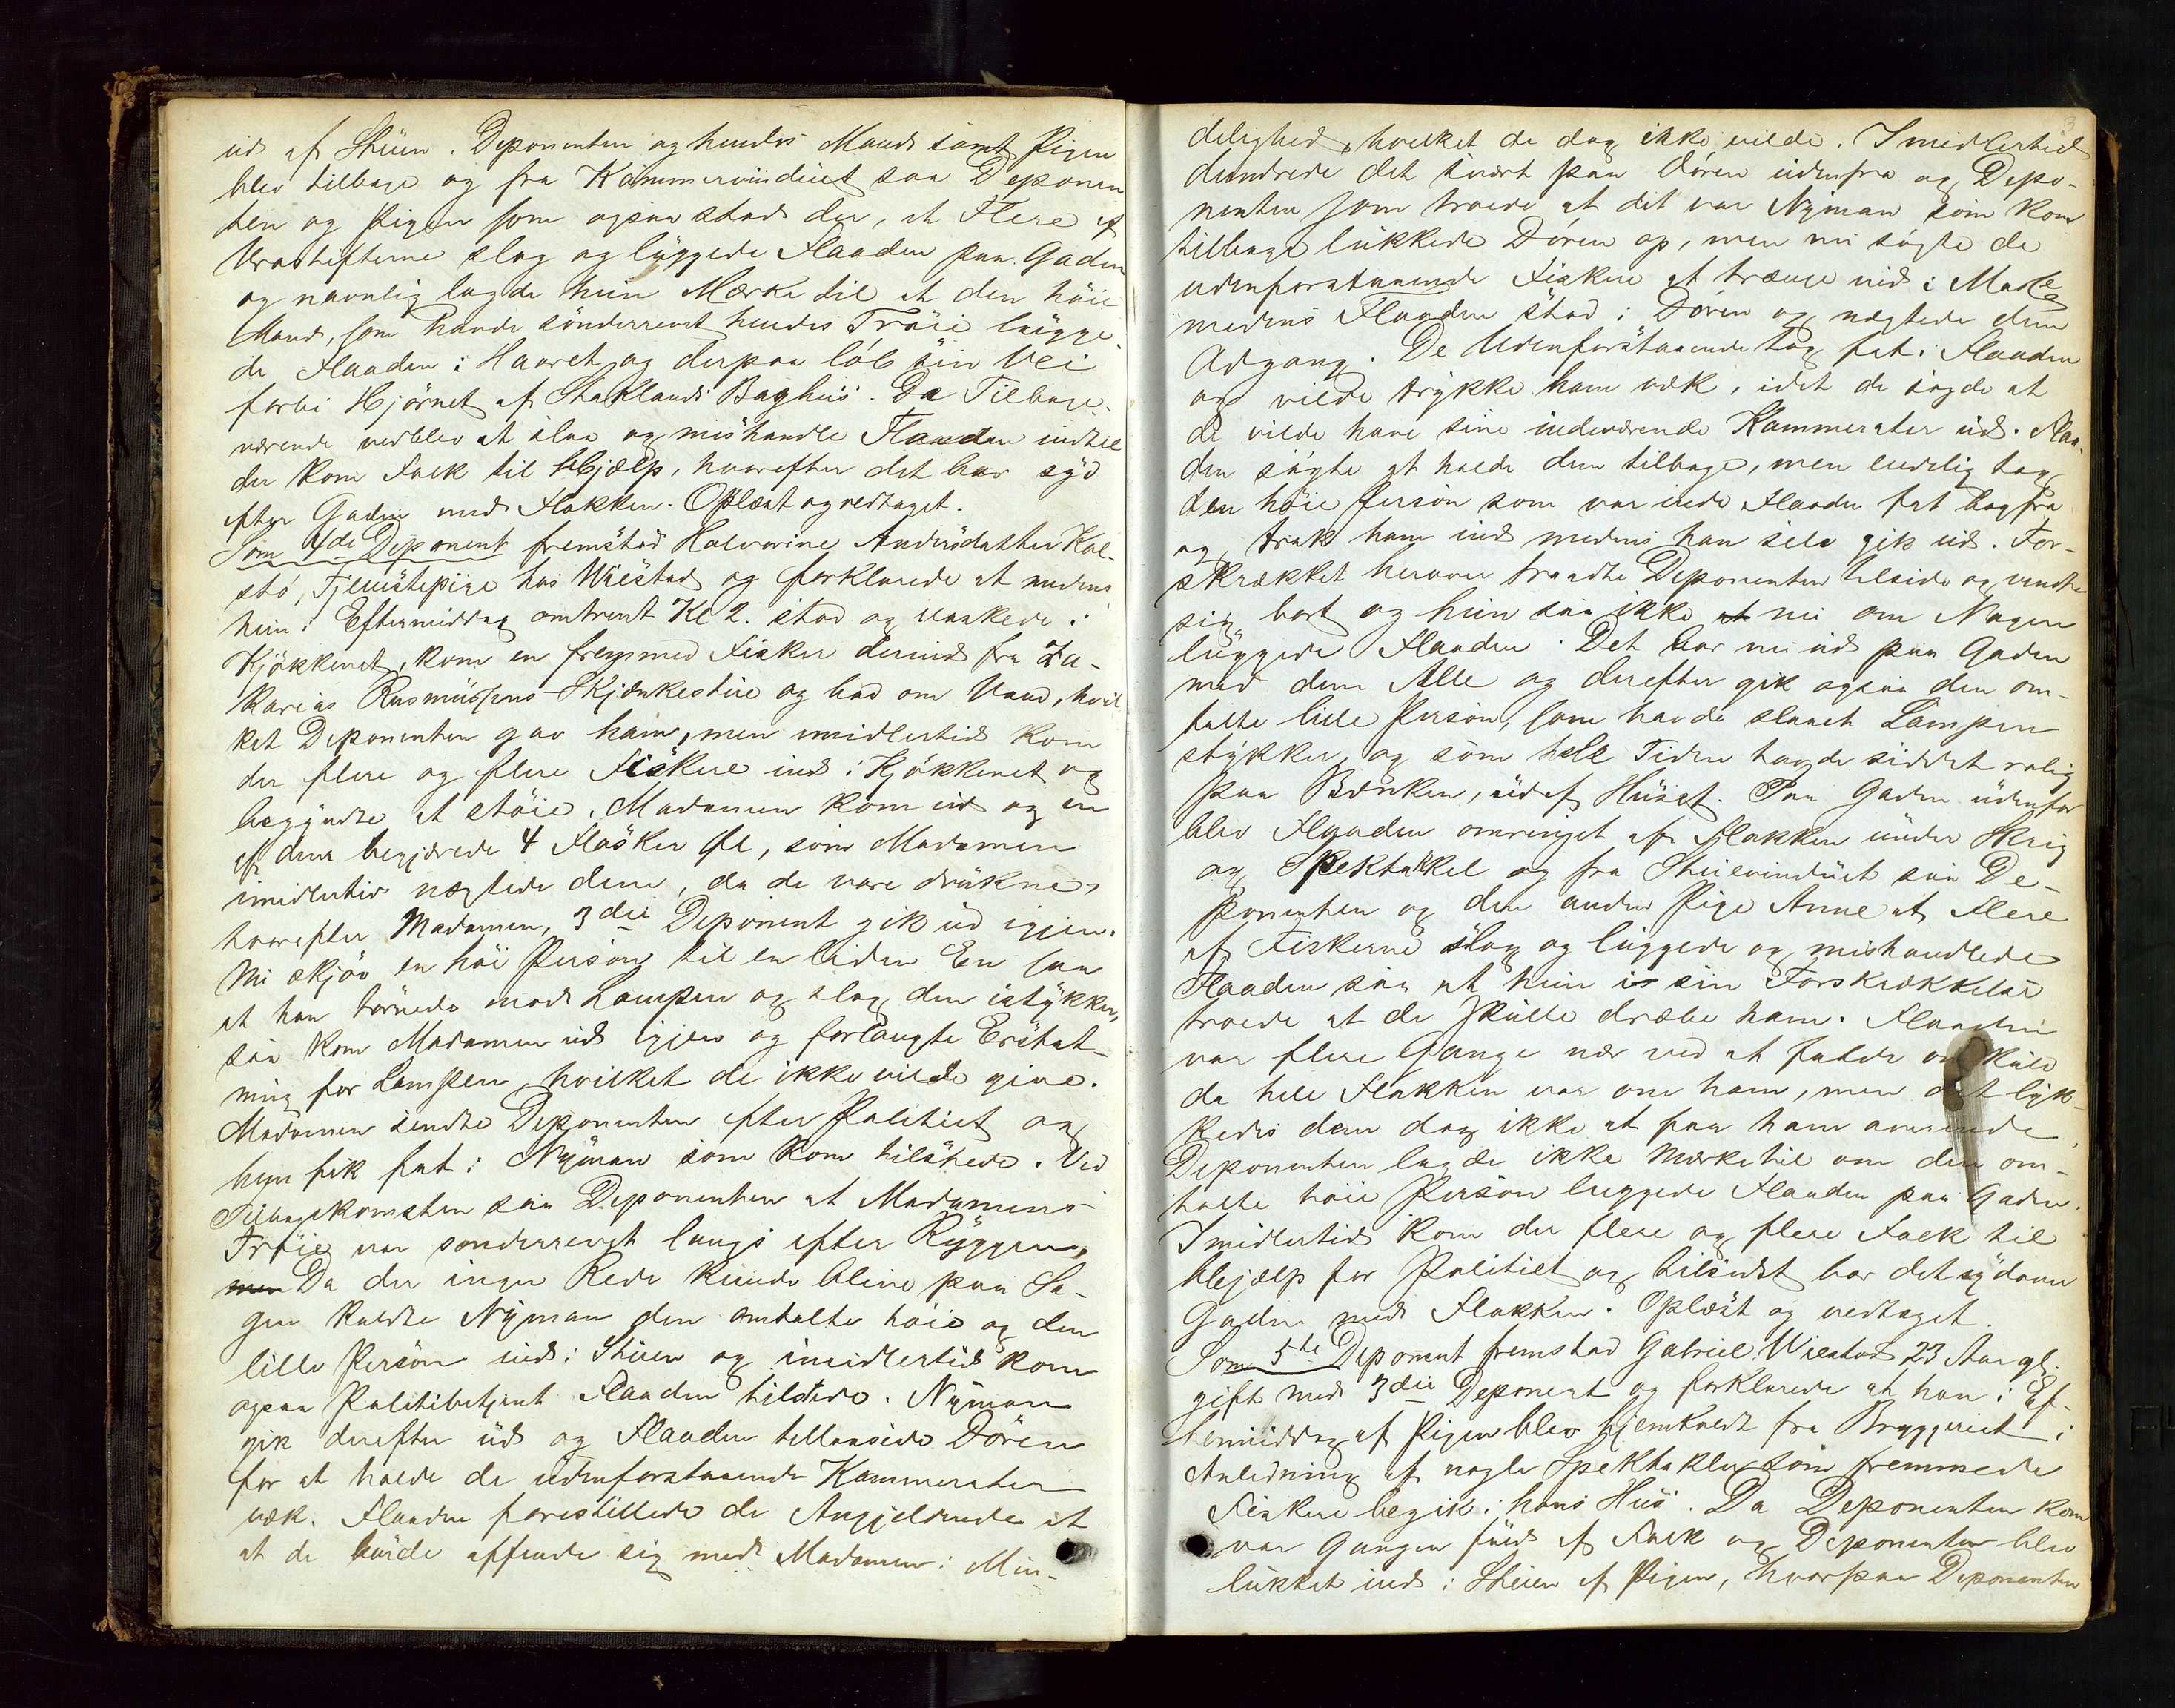 ud af Stuen. Deponenten og hendes Mand samt Pigen
blev tilbage og fra Kammervinduet saa Deponen
ten og Pigen som ogsaa stod der, at Flere af
Urostifterne slog og luggede Flaaden paa Gaden
og navnlig lagde hun Mærke til at den høie
Mand, som havde sønderrevet hendes Trøie lugge
de Flaaden i Haaret og derpaa løb sin Vei
forbi Hjørnet af Staklands Baghus. De Tilbage-
værende vedblev at slaa og mishandle Flaaden indtil
der kom Folk til Hjælp, hvorefter det bar syd
efter Gaden med Flokken. Oplæst og vedtaget.
Som 4de Deponent fremstod Halvorine Andersdatter Kol-
stø, Tjenestepige hos Wiestad og forklarede at medens
hun i Eftermiddag omtrent Kl 2. stod og vaskede i
Kjøkkenet, kom en fremmed Fisker derind fra Za-
karias Rasmussens Skjænkestue og bad om Vand, hvil
ket Deponenten gav ham, men imidlertid kom
der flere og flere Fiskere ind i Kjøkkenet og
begyndte at støie. Madamen kom ud og en
af dem begjærede 4 Flasker Øl, som Madamen
imidlertid nægtede dem, da de vare drukne,
hvorefter Madamen, 3die Deponent gik ud igjen.
Nu skjøv en høi Person til en liden En saa
at han tørnede mod Lampen og slog den istykker,
saa kom Madamen ud igjen og forlangte Erstat-
ning for Lampen, hvilket de ikke vilde give.
Madamen sendte Deponenten efter Politiet og
hun fik fat i Nyman som kom tilstede. Ved
Tilbagekomsten saa Deponenten at Madamens
Trøie var sønderrevet langs efter Ryggen.
men Da der ingen Rede kunde blive paa Sa-
gen kaldte Nyman den omtalte høie og den
lille Person ind i Stuen og imidlertid kom
ogsaa Politibetjent Flaaden tilstede. Nyman
gik derefter ud og Flaaden tillaasede Døren
for at holde de udenforstaaende Kammerater
væk. Flaaden forestillede de Angjeldende at
at de burde affinde sig med Madamen i Min-
delighed, hvilket de dog ikke vilde. Imidlertid
dundrede det svært paa Døren udenfra og Depo-
nenten som troede at det var Nyman som kom
tilbage lukkede Døren op, men nu søgte de
udenforstaaende Fiskere at trænge ind i Masse
medens Flaaden stod i Døren og nægtede dem
Adgang. De Udenforstaaende tog fat i Flaaden
og vilde trykke ham væk, idet de sagde at
de vilde have sine indeværende Kammerater ud. Flaa-
den søgte at holde dem tilbage, men endelig tog
den høie Person som var inde Flaaden fat bagfra
og trak ham ind medens han selv gik ud. For-
skrækket herover traadte Deponenten tilside og vendte
sig bort og hun saa ikke at nu om Nogen
luggede Flaaden. Det bar nu ud paa Gaden
med dem Alle og derefter gik ogsaa den om-
talte lille Person, som havde slaaet Lampen
stykker og som hele Tiden havde siddet rolig
paa Bænken, ud af Huset. Paa Gaden udenfor
blev Flaaden omringet af Flokken under Skrig
og Spektakkel og fra Stuevinduet saa De-
ponenten og den anden Pige Anne at Flere
af Fiskerne slog og luggede og mishandlede
Flaaden saa at hun i sin Forskrækkelse
troede at de skulle dræbe ham. Flaaden
var flere Gange nær ved at falde omkuld
da hele Flokken var om ham, men det lyk-
kedes dem dog ikke at faa ham overende.
Deponenten lagde ikke Mærke til om den om-
talte høie Person luggede Flaaden paa Gaden.
Imidlertid kom der flere og flere Folk til
Hjælp for Politiet og tilsidst bar det sydover
Gaden med Flokken. Oplæst og vedtaget.
Som 5te Deponent fremstod Gabriel Wiestad 23 Aar gl.
gift med 3die Deponent og forklarede at han i Ef-
termiddag af Pigen blev hjemkaldt fra Bryggeriet i
Anledning af nogle Spektakler som fremmede
Fiskere begik i hans Hus. Da Deponenten kom
var Gangen fuld af Folk og Deponenten blev
lukket ind i Stuen af Pigen, hvorpaa Deponenten